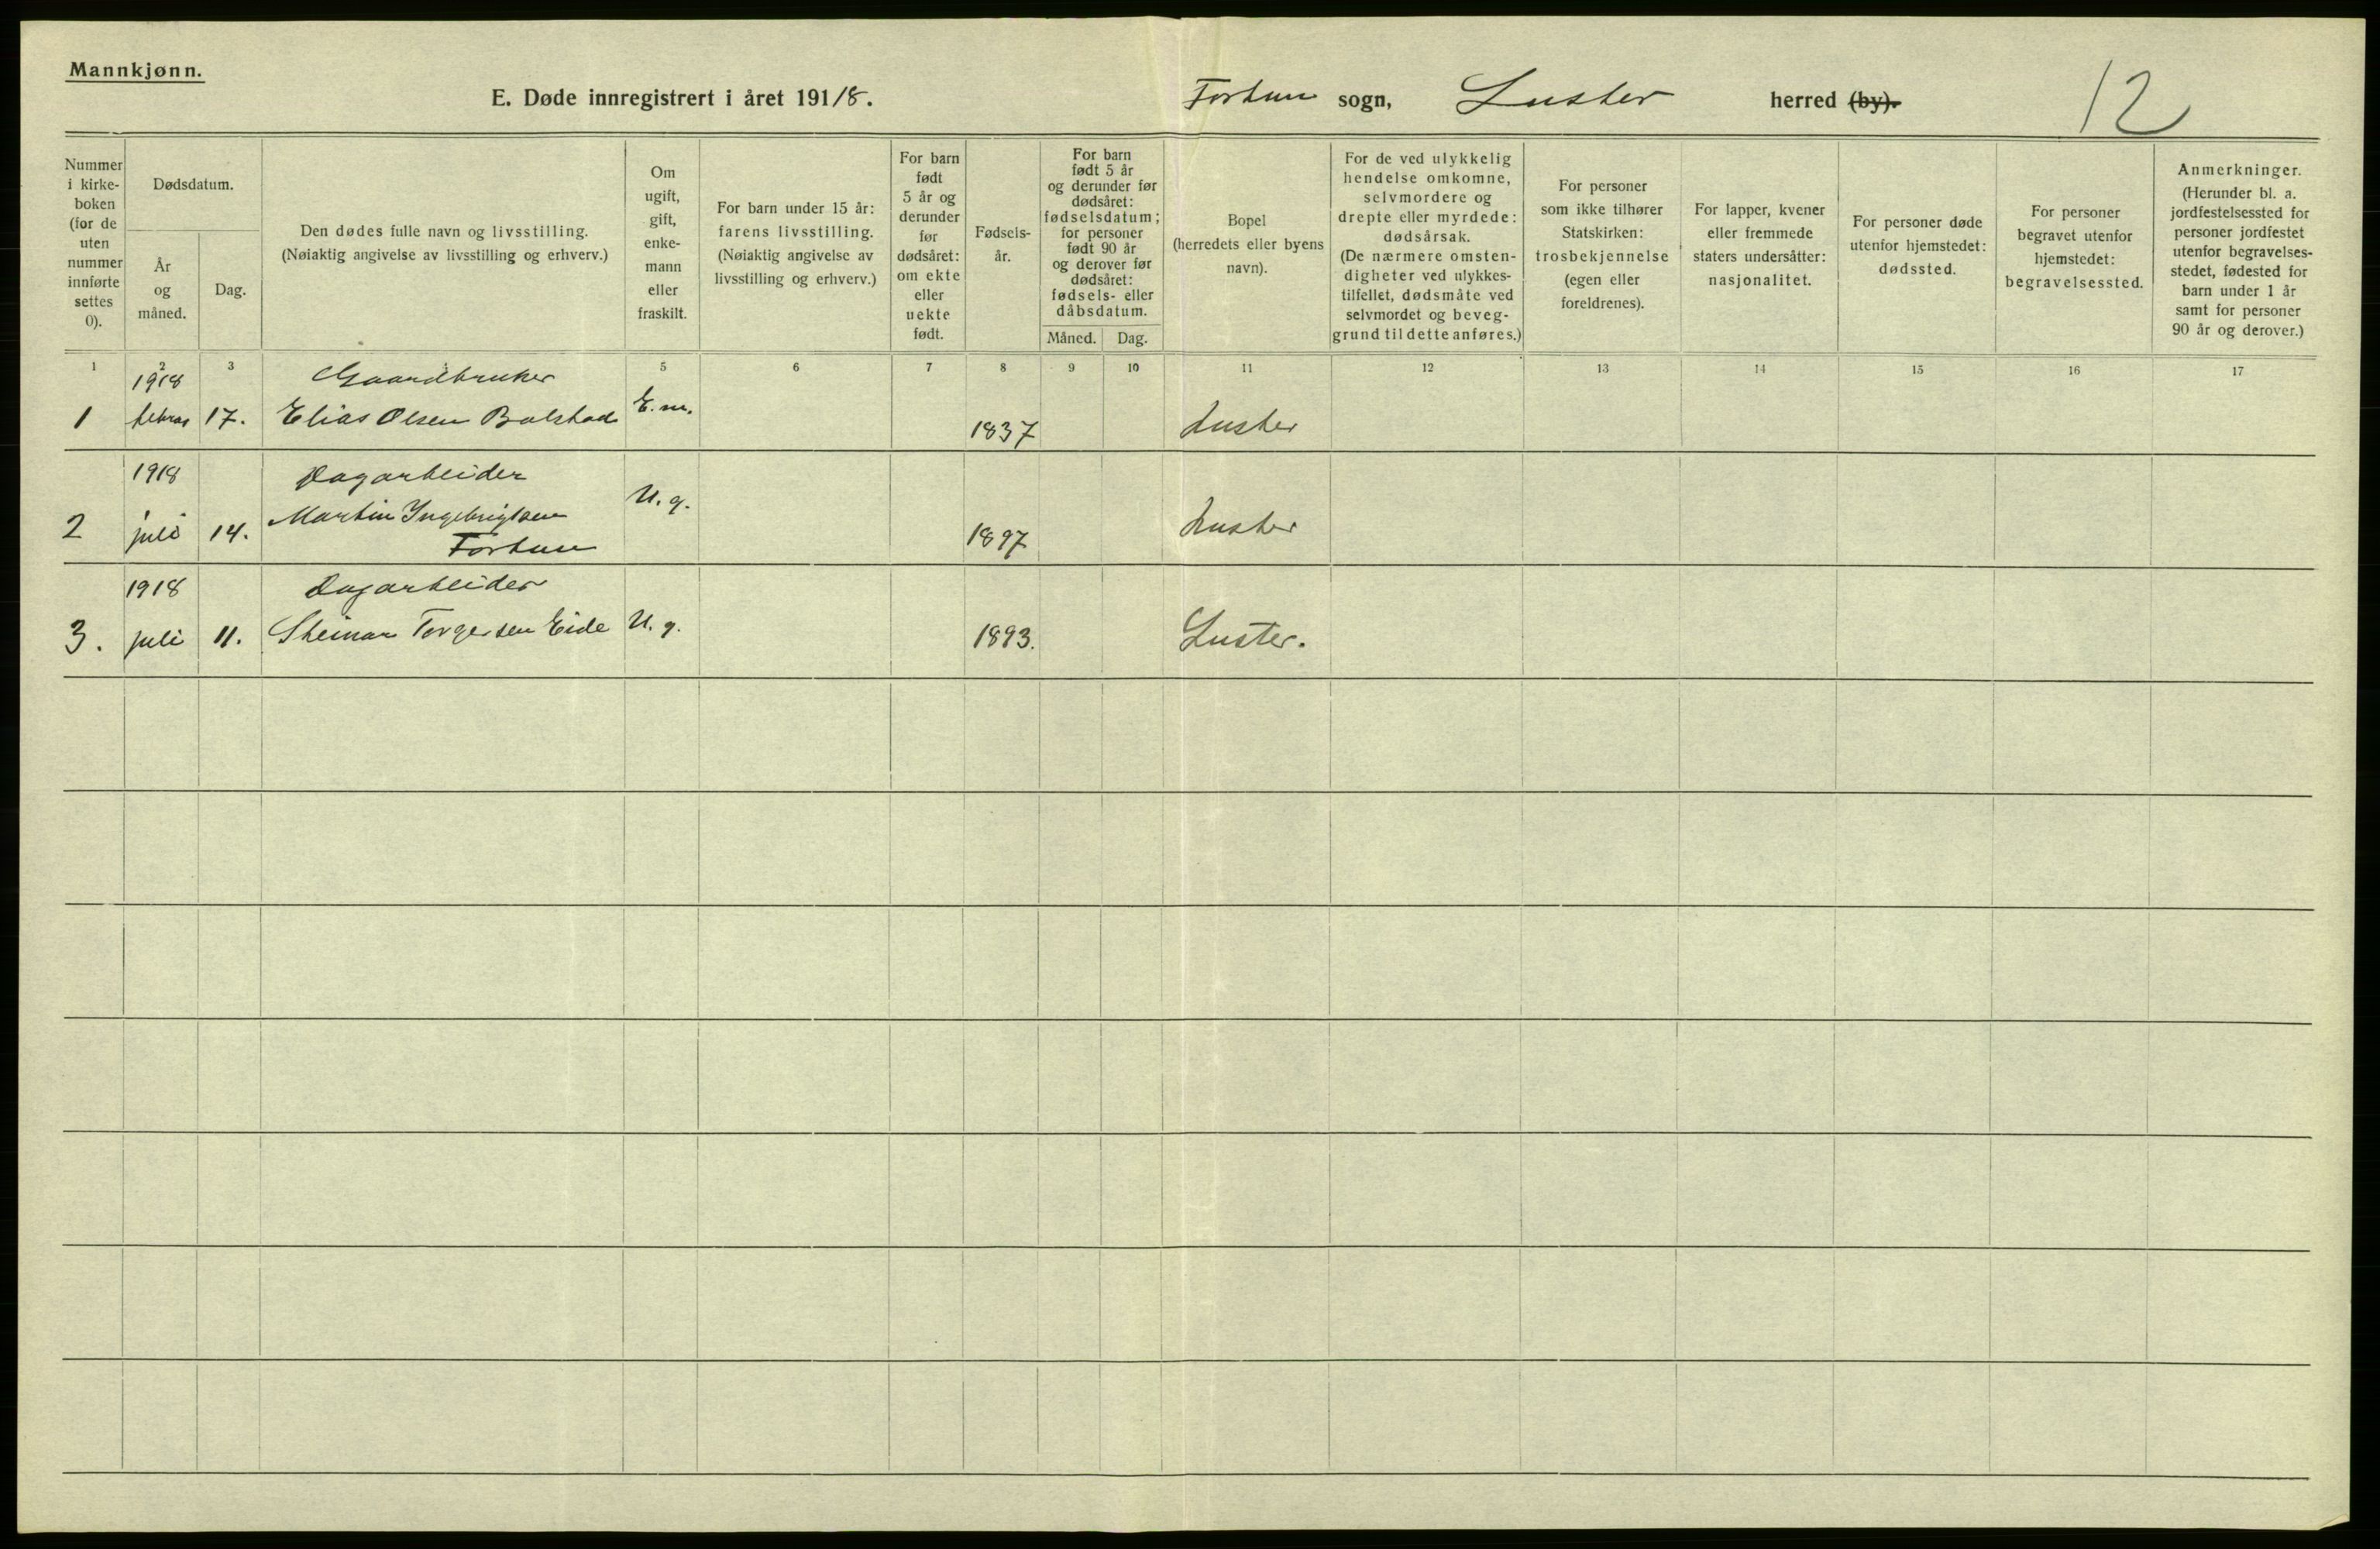 Mannkjønn.
E. Døde innregistrert i året 1918.
Fortun sogn, Luster herred (by).
12
Nummer i kirke- boken (for de uten nummer innførte settes 0).
Dødsdatum.
År og måned.
Dag.
Den dødes fulle navn og livsstilling.
(Nøiaktig angivelse av livsstilling og erhverv.)
Om ugift, gift, enke- mann eller fraskilt.
For barn under 15 år: farens livsstilling. (Nøiaktig angivelse av livsstilling og erhverv.)
For barn født 5 år og derunder før dødsåret: om ekte eller uekte født.
Fødsels- år.
For barn født 5 år og derunder før dødsåret: fødselsdatum; for personer født 90 år og derover før dødsåret: fødsels- eller dåbsdatum.
Måned. Dag.
Bopel (herredets eller byens navn).
For de ved ulykkelig hendelse omkomne, selvmordere og drepte eller myrdede: dødsårsak. (De nærmere omsten- digheter ved ulykkes- tilfellet, dødsmåte ved selvmordet og beveg- grund til dette anføres.)
For personer som ikke tilhører Statskirken: trosbekjennelse (egen eller foreldrenes).
For lapper, kvener eller fremmede staters undersåtter: nasjonalitet.
For personer døde utenfor hjemstedet: dødssted.
For personer begravet utenfor hjemstedet: begravelsessted.
Anmerkninger. (Herunder bl. a. jordfestelsessted for personer jordfestet utenfor begravelses- stedet, fødested for barn under 1 år samt for personer 90 år og derover.)
1 2 3 5 6 7 8 9 10 11 12 13 14 15 16 17
1918 Gaardbruker
1 februar 17. Elias Olsen Bolstad E.m. 1837 Luster
1918 Dagarbeider
2 juli 14. Martin Ingebrigtsen U.g. 1897 Luster
Fortun
1918 Dagarbeider
3. juli 11. Steinar Torgersen Eide U.g. 1893. Luster.